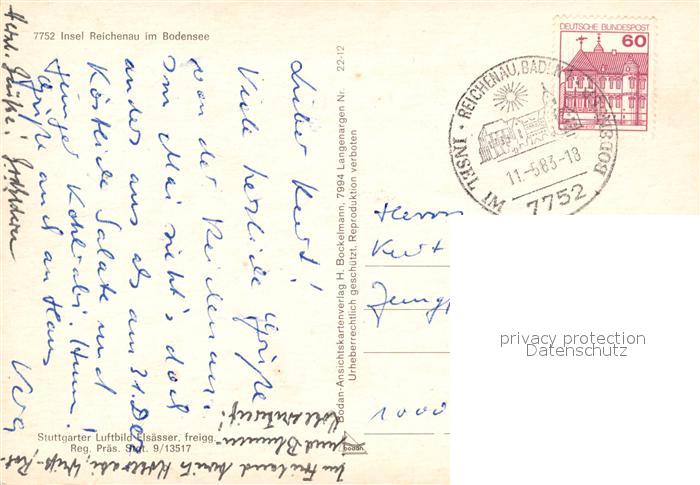 7752 Insel Reichenau im Bodensee
Lieber Kurt!
Viele herzliche Grüße
von der Reichenau.
Im Mai sieht's doch
anders aus als am 31. Dez
Köstliche Salate und
junger Kohlrabi. Hmm!
Grüße auch an Haus
Herzl. Grüße!
und Blumen-
22-12
Bodan-Ansichtskartenverlag H. Bockelmann, 7994 Langenargen Nr.
Urheberrechtlich geschützt. Reproduktion verboten
Stuttgarter Luftbild Elsässer, freigg.
Reg. Präs. Stgt. 9/13517
bodan
DEUTSCHE BUNDESPOST
60
INSEL REICHENAU, BADEN
IM BODENSEE
11.-5.83-18
7752
Herrn
Kurt
1000
privacy protection
Datenschutz